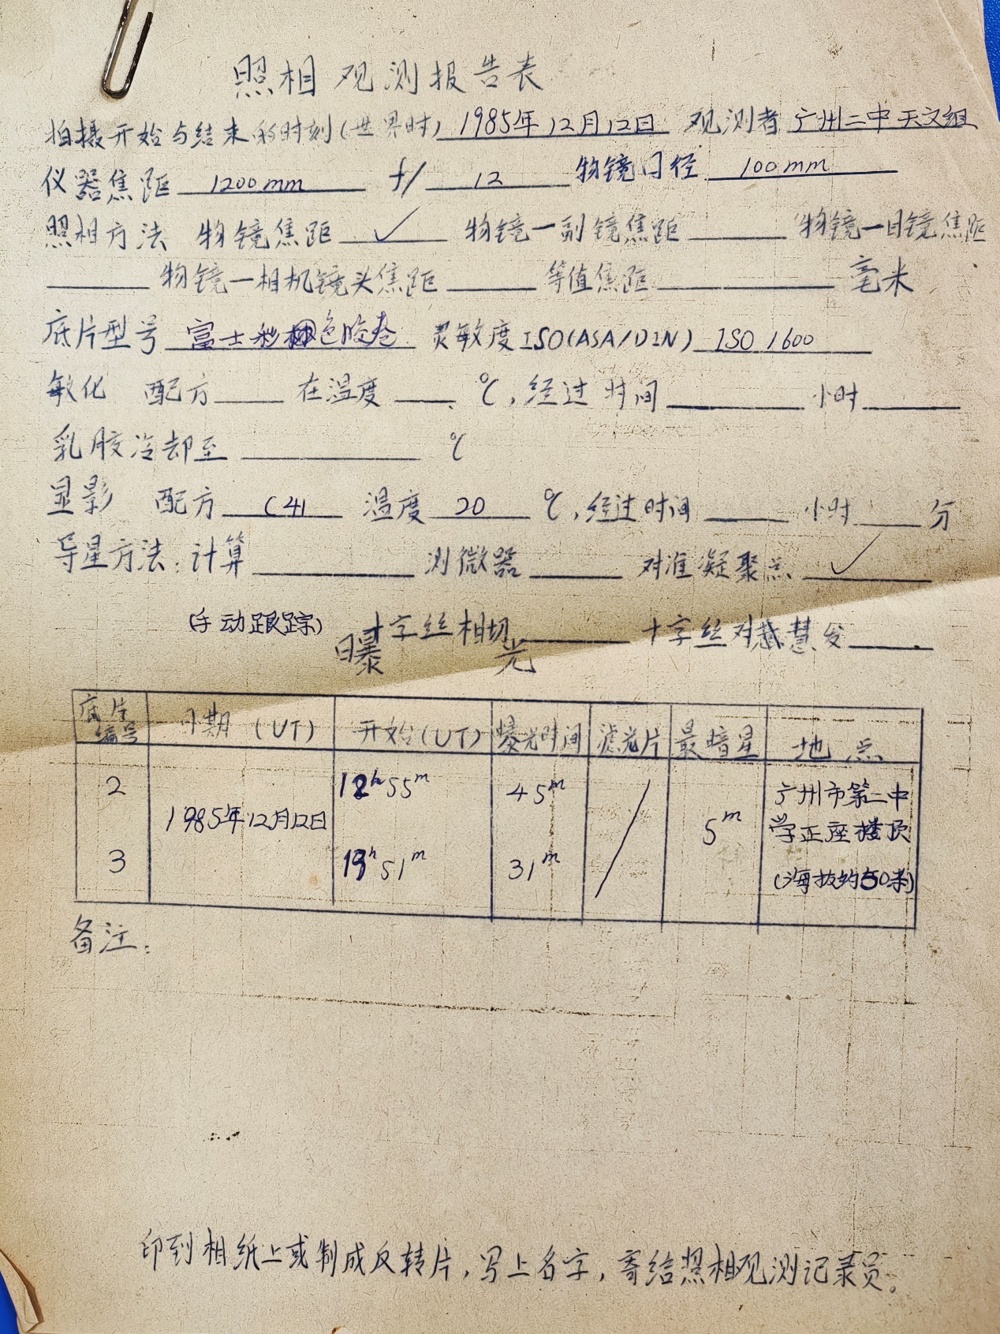 照相观测报告表
拍摄开始与结束的时刻(世界时) 1985年12月12日 观测者 广州二中天文组
仪器焦距 1200mm f/ 12 物镜口径 100mm
照相方法 物镜焦距 ✓ 物镜一副镜焦距 物镜一目镜焦距
物镜一相机镜头焦距 等值焦距 毫米
底片型号 富士彩色胶卷 灵敏度ISO(ASA/DIN) ISO 1600
敏化 配方 在温度 ℃,经过时间 小时
乳胶冷却至 ℃
显影 配方 C41 温度 20 ℃,经过时间 小时 分
导星方法:计算 测微器 对准凝聚点 ✓
(手动跟踪) 十字丝相切 十字丝对彗发
曝光
底片编号 日期(UT) 开始(UT) 曝光时间 滤光片 最暗星 地点
2 1985年12月12日 12h55m 45m / 5m 广州市第二中
学正座楼顶
3 13h51m 31m (海拔约50米)
备注:
印到相纸上或制成反转片,写上名字,寄给照相观测记录员。